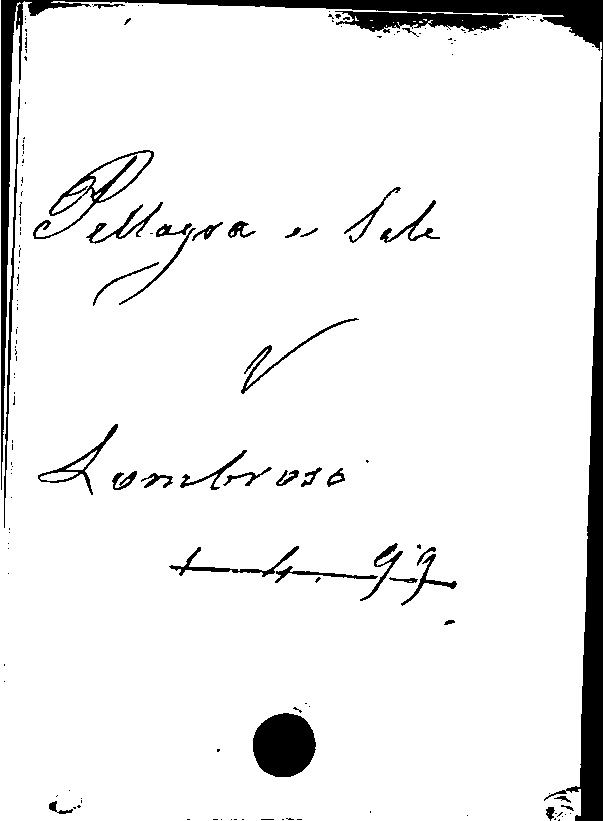 Pellagra e Sale
V
Lombroso
1. 4. 99